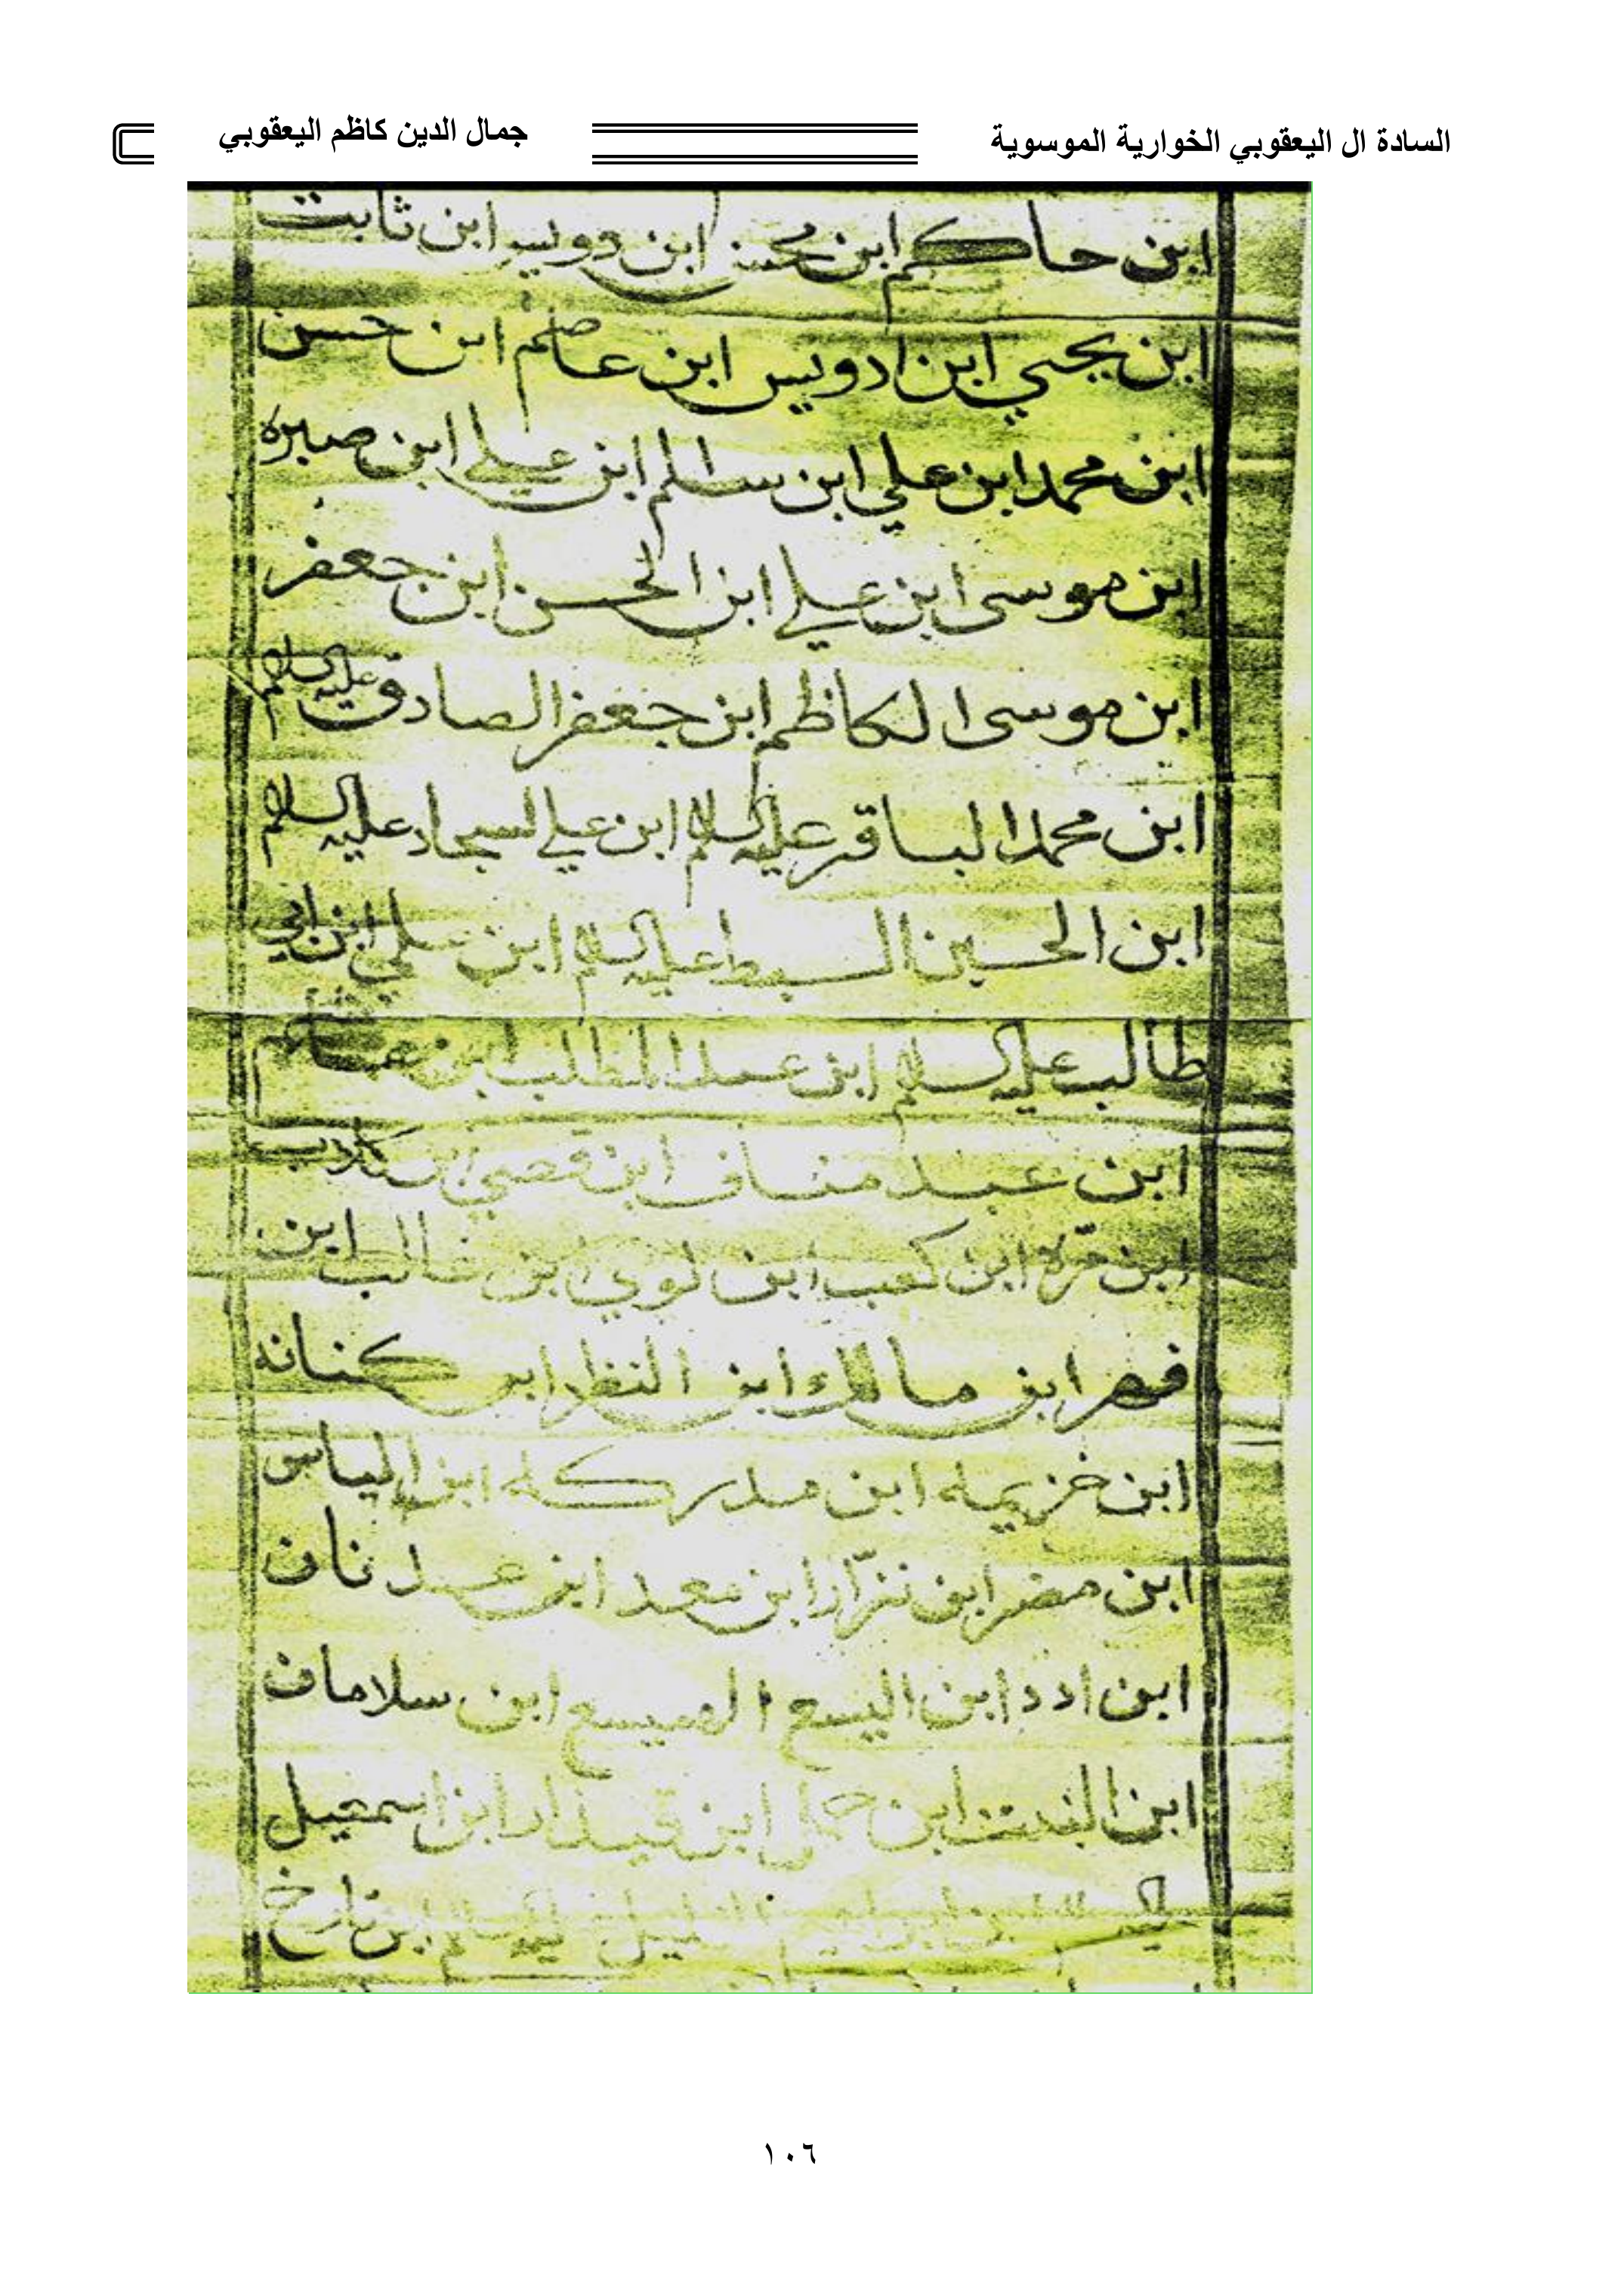 السادة ال اليعقوبي الخوارية الموسوية
جمال الدين كاظم اليعقوبي
ابن حاكم ابن محسن ابن دويس ابن ثابت
ابن يحيي ابن ادويس ابن عاصم ابن حسن
ابن محمد ابن علي ابن سالم ابن علي ابن صبره
ابن موسى ابن علي ابن الحسن ابن جعفر
ابن موسى الكاظم ابن جعفر الصادق عليه السلام
ابن محمد الباقر عليه السلام ابن علي السجاد عليه السلام
ابن الحسين السبط عليه السلام ابن علي ابن ابي
طالب عليه السلام ابن عبد المطلب ابن
ابن عبد مناف ابن قصي ابن كلاب
ابن مرّة ابن كعب ابن لوي ابن غالب ابن
فهر ابن مالك ابن النظر ابن كنانه
ابن خزيمه ابن مدركه ابن الياس
ابن مضر ابن نزّار ابن معد ابن عدنان
ابن ادد ابن اليسع الهميسع ابن سلامان
ابن النبت ابن حمل ابن قيدار ابن اسمعيل
ابن تارخ
١٠٦